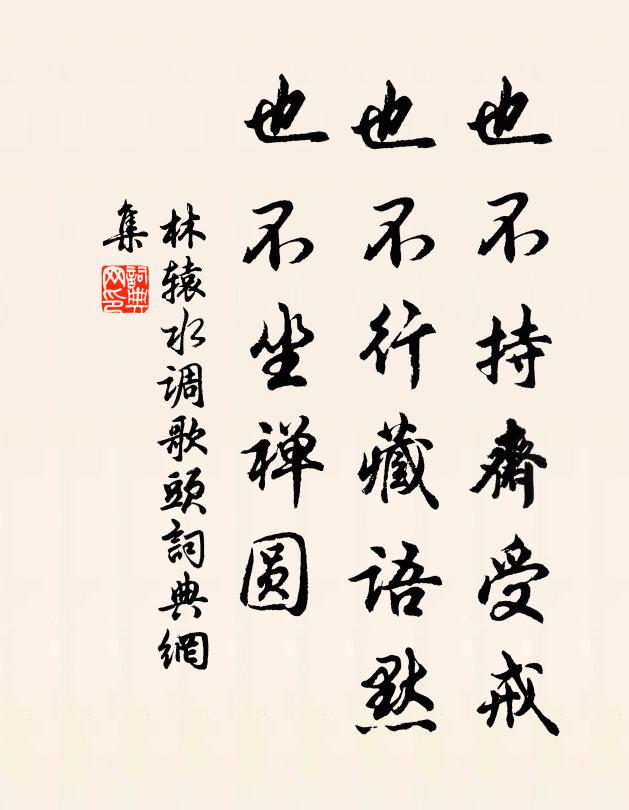 也不持齋受戒
也不行藏語默
也不坐禅圆
林辕水调歌頭詞典網
集
詞典网印